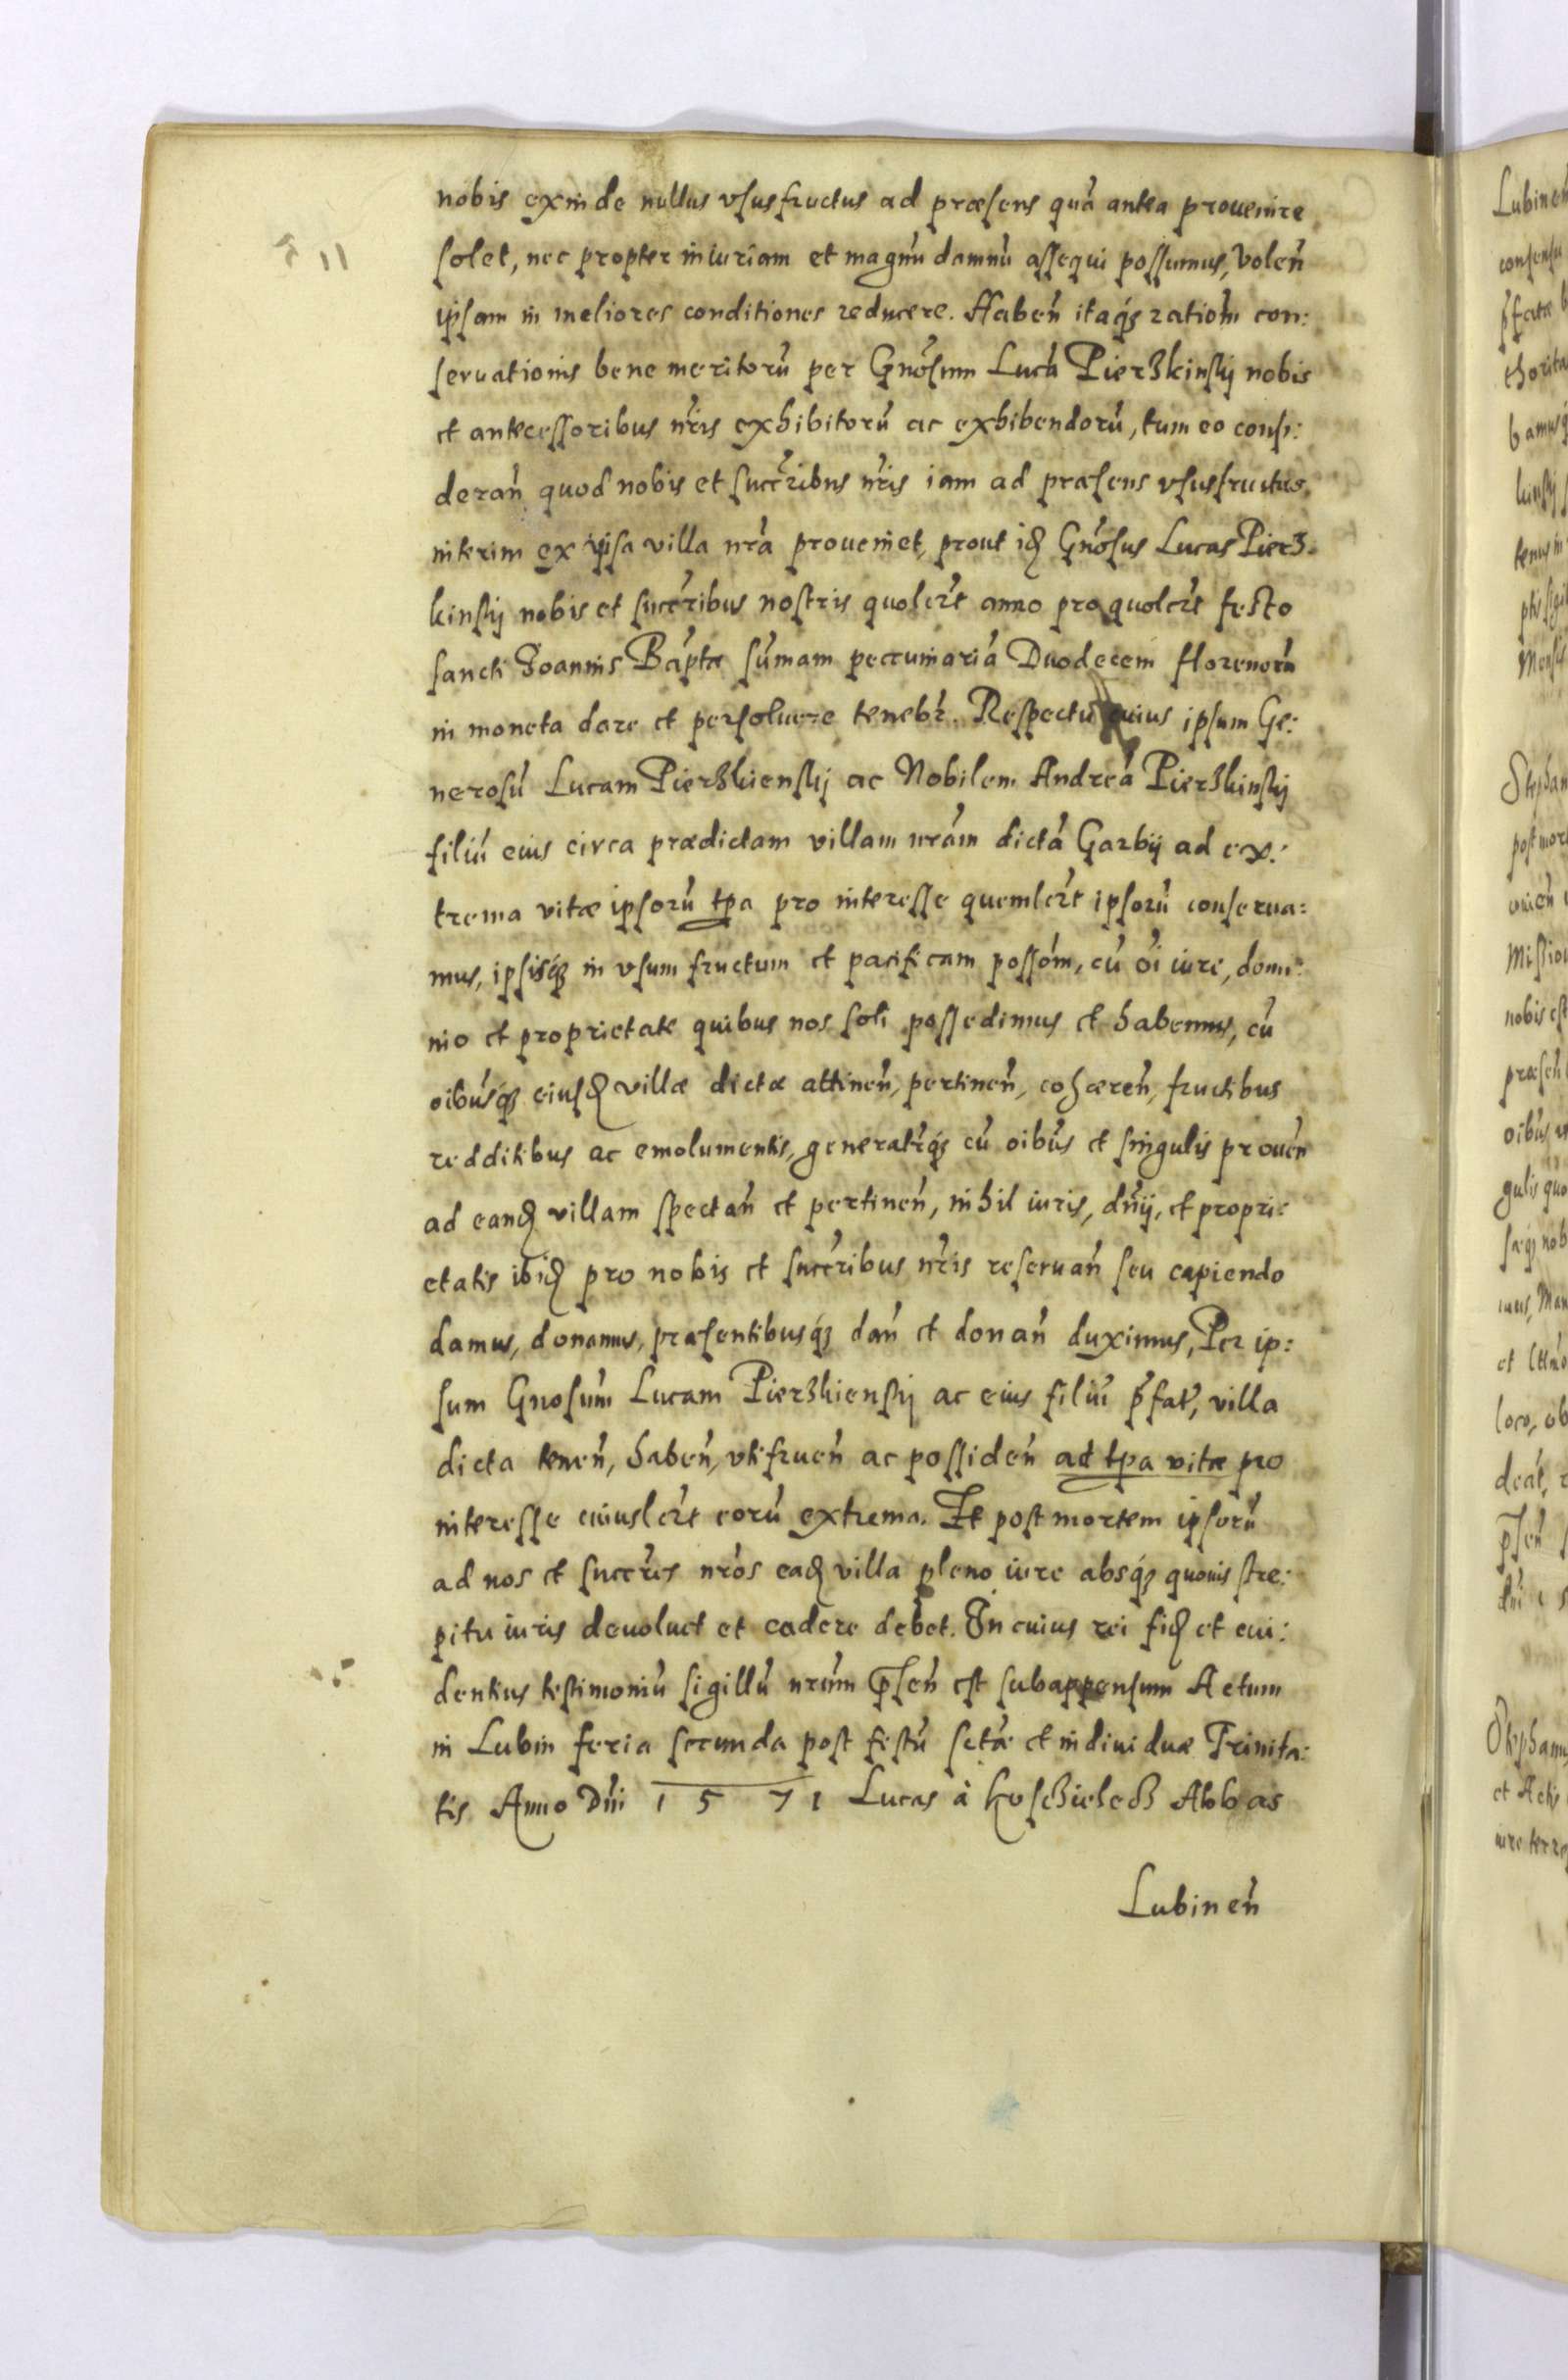 nobis exinde nullus vsusfructus ad præsens quã antea prouenire
solet, nec propter iniuriam et magnũ damnũ assequi possumus, Voleñ
ipsam in meliores conditiones reducere. Habeñ itaq́ꝫ ratioñm con:
seruationis bene meritorũ per Gñosum Lucã Pierzkinskij nobis
et antecessoribus nr̃is exhibitorũ ac exhibendorũ, tum eo consi:
derañ quod nobis et succr̃ibus nr̃is iam ad præsens vsusfructus
interim ex ipsa villa nr̃a proueniet, prout idꝫ Gñosus Lucas Pierz.
kinskij nobis et succr̃ibus nostris quoler̃t anno pro quoler̃t festo
sancti Joannis Bãptæ sũmam peccuniariã Duodecem florenorũ
in moneta dare et persoluere tenebr̃. Respectu cuius ipsum Ge:
nerosũ Lucam Pierzkienskij ac Nobilem Andreã Pierzkinskij
filiũ eius circa prædictam villam nrãm dictã Garbij ad ex:
trema vitæ ipsorũ tp̃a pro interesse quemler̃t ipsorũ conserua:
mus, ipsisq́ꝫ in vsum fructum et pacificam possõm, cũ õi iure, domi:
nio et proprietate quibus nos soli possedimus et habemus, cũ
oibũsq́ꝫ eiusdꝫ villæ dictæ attineñ, pertineñ, cohæreñ, fructibus
redditibus ac emolumentis, generatr̃q́ꝫ cũ oibũs et singulis proueñ
ad eandꝫ villam spectañ et pertineñ, nihil iuris, dñij, et propri:
etatis ibidꝫ pro nobis et succr̃ibus nr̃is reseruañ seu capiendo
damus, donamus, præsentibusq́ꝫ dañ et donañ duximus, Per ip:
sum Gnosũm Lucam Pierzkienskij ac eius filiũ p̃fat̃, villa
dicta teneñ, habeñ, vtifrueñ ac possideñ ad tp̃a vitæ pro
interesse cuiusler̃t eorũ extrema. Et post mortem ipsorũ
ad nos et succr̃es nrõs eadꝫ villa pleno iure absq́ꝫ quouis stre:
pitu iuris deuoluet et cadere debet. In cuius rei fidꝫ et eui:
dentius testimoniũ sigillũ nrũm p̃señ est subappensum Actum
in Lubin feria secunda post festũ sctæ̃ et indiuiduæ Trinita:
tis Anno Dñi 1 5 7 1 Lucas à Koschieletz Abbas
Lubineñ